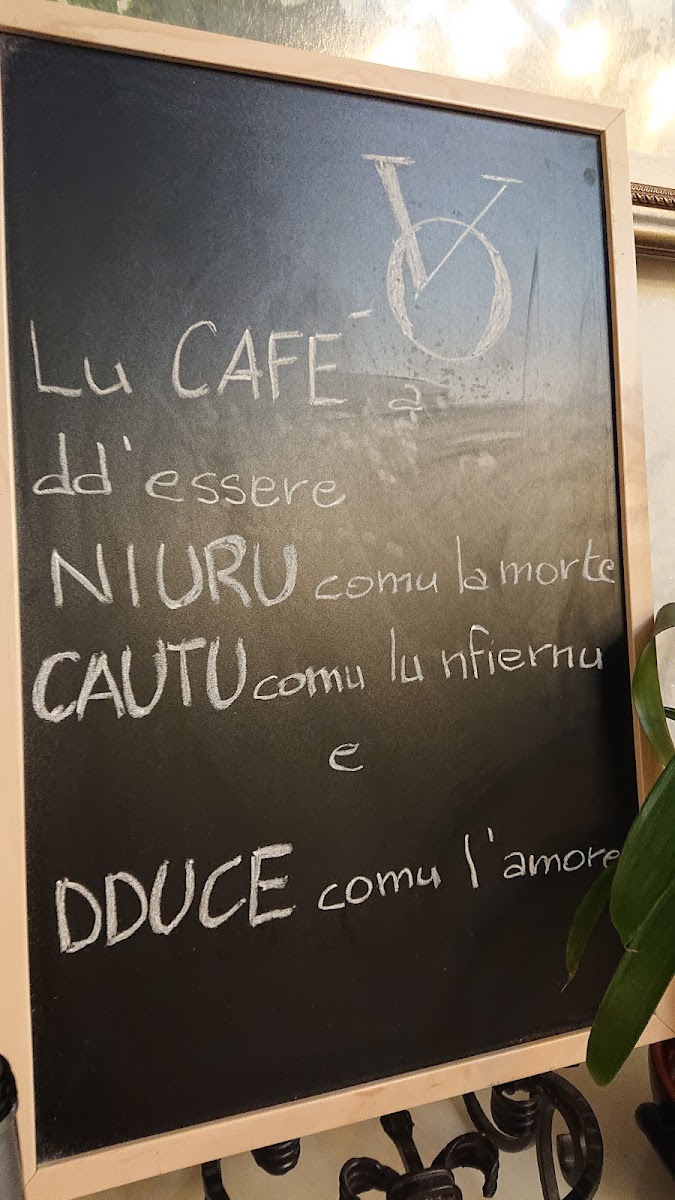 VO
Lu CAFE' a
dd'essere
NIURU comu la morte
CAUTU comu lu nfiernu
e
DDUCE comu l'amore